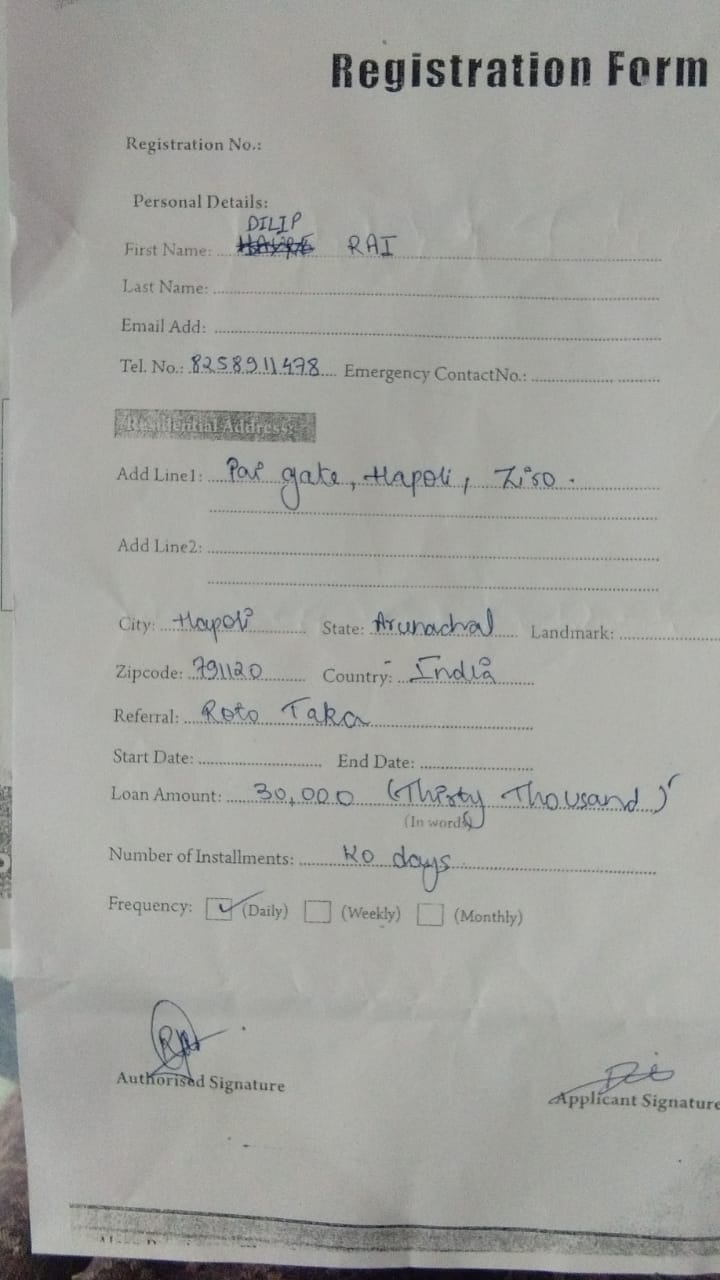 Registration Form
Registration No.:
Personal Details:
DILIP
First Name: RAI
Last Name:
Email Add:
Tel. No.: 8258911478 Emergency ContactNo.:
Residential Address:
Add Line1: Pai gate, Hapoli, Ziro.
Add Line2:
City: Hapoli State: Arunachal Landmark:
Zipcode: 791120 Country: India
Referral: Roto Taka
Start Date: End Date:
Loan Amount: 30,000 (Thirty Thousand)
(In words)
Number of Installments: days
Frequency: (Daily) (Weekly) (Monthly)
Authorised Signature
Applicant Signature